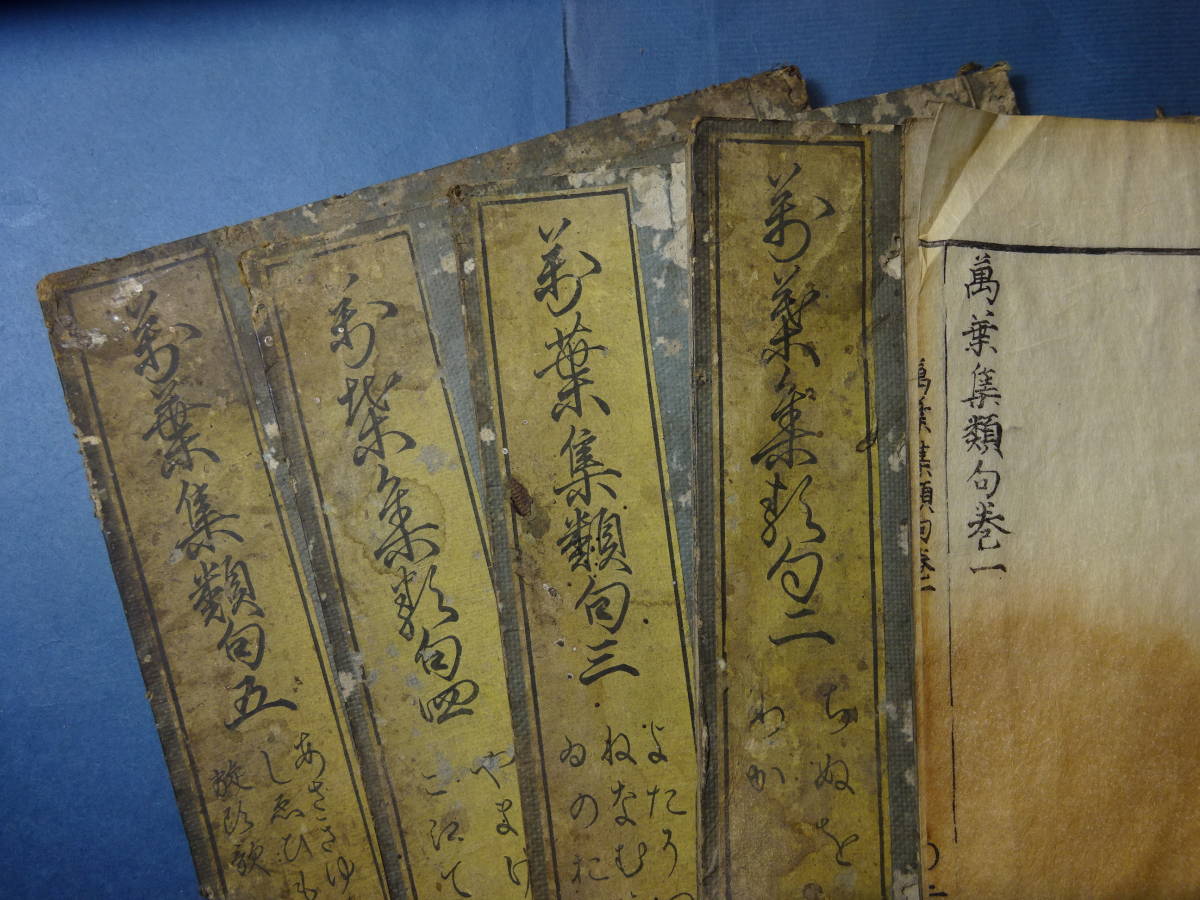 萬葉集類句巻一
萬葉集類句巻一
萬葉集類句二
ちぬを
わか
萬葉集類句三
よたう
ねなむ
ゐのお
萬葉集類句四
やまけ
こえて
萬葉集類句五
あさきゆ
しゑひも
旋頭歌